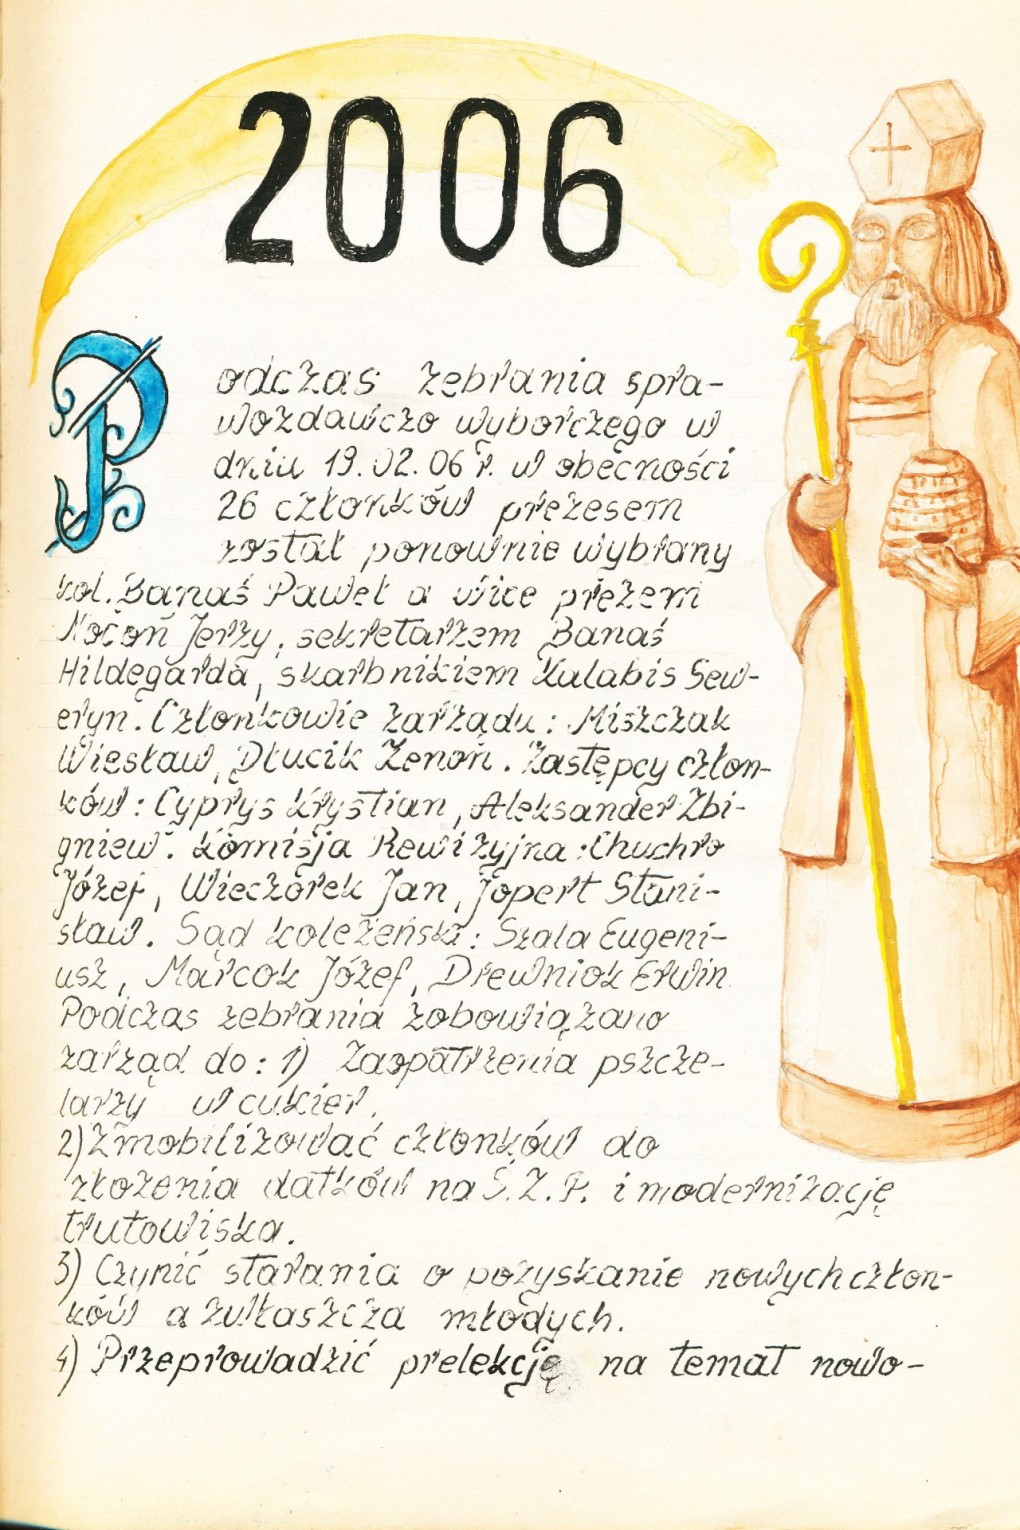 2006
Podczas zebrania spra-
wozdawczo wyborczego w
dniu 19.02.06 r. w obecności
26 członków prezesem
został ponownie wybrany
kol. Banaś Paweł a wice prezem
Nocoń Jerzy, sekretarzem Banaś
Hildegarda, skarbnikiem Kalabis Sew-
eryn. Członkowie zarządu: Miszczak
Wiesław, Dłucik Zenon. Zastępcy człon-
ków: Cyprys Krystian, Aleksander Zbi-
gniew. Komisja Rewizyjna: Chuchro
Józef, Wieczorek Jan, Jopert Stani-
sław. Sąd koleżeński: Szala Eugeni-
usz, Marcok Józef, Drewniok Erwin
Podczas zebrania zobowiązano
zarząd do: 1) Zaopatrzenia pszcze-
larzy w cukier.
2) Zmobilizować członków do
złożenia datków na Ś.Z.P. i modernizację
trutowiska.
3) Czynić starania o pozyskanie nowych człon-
ków a zwłaszcza młodych.
4) Przeprowadzić prelekcję na temat nowo-